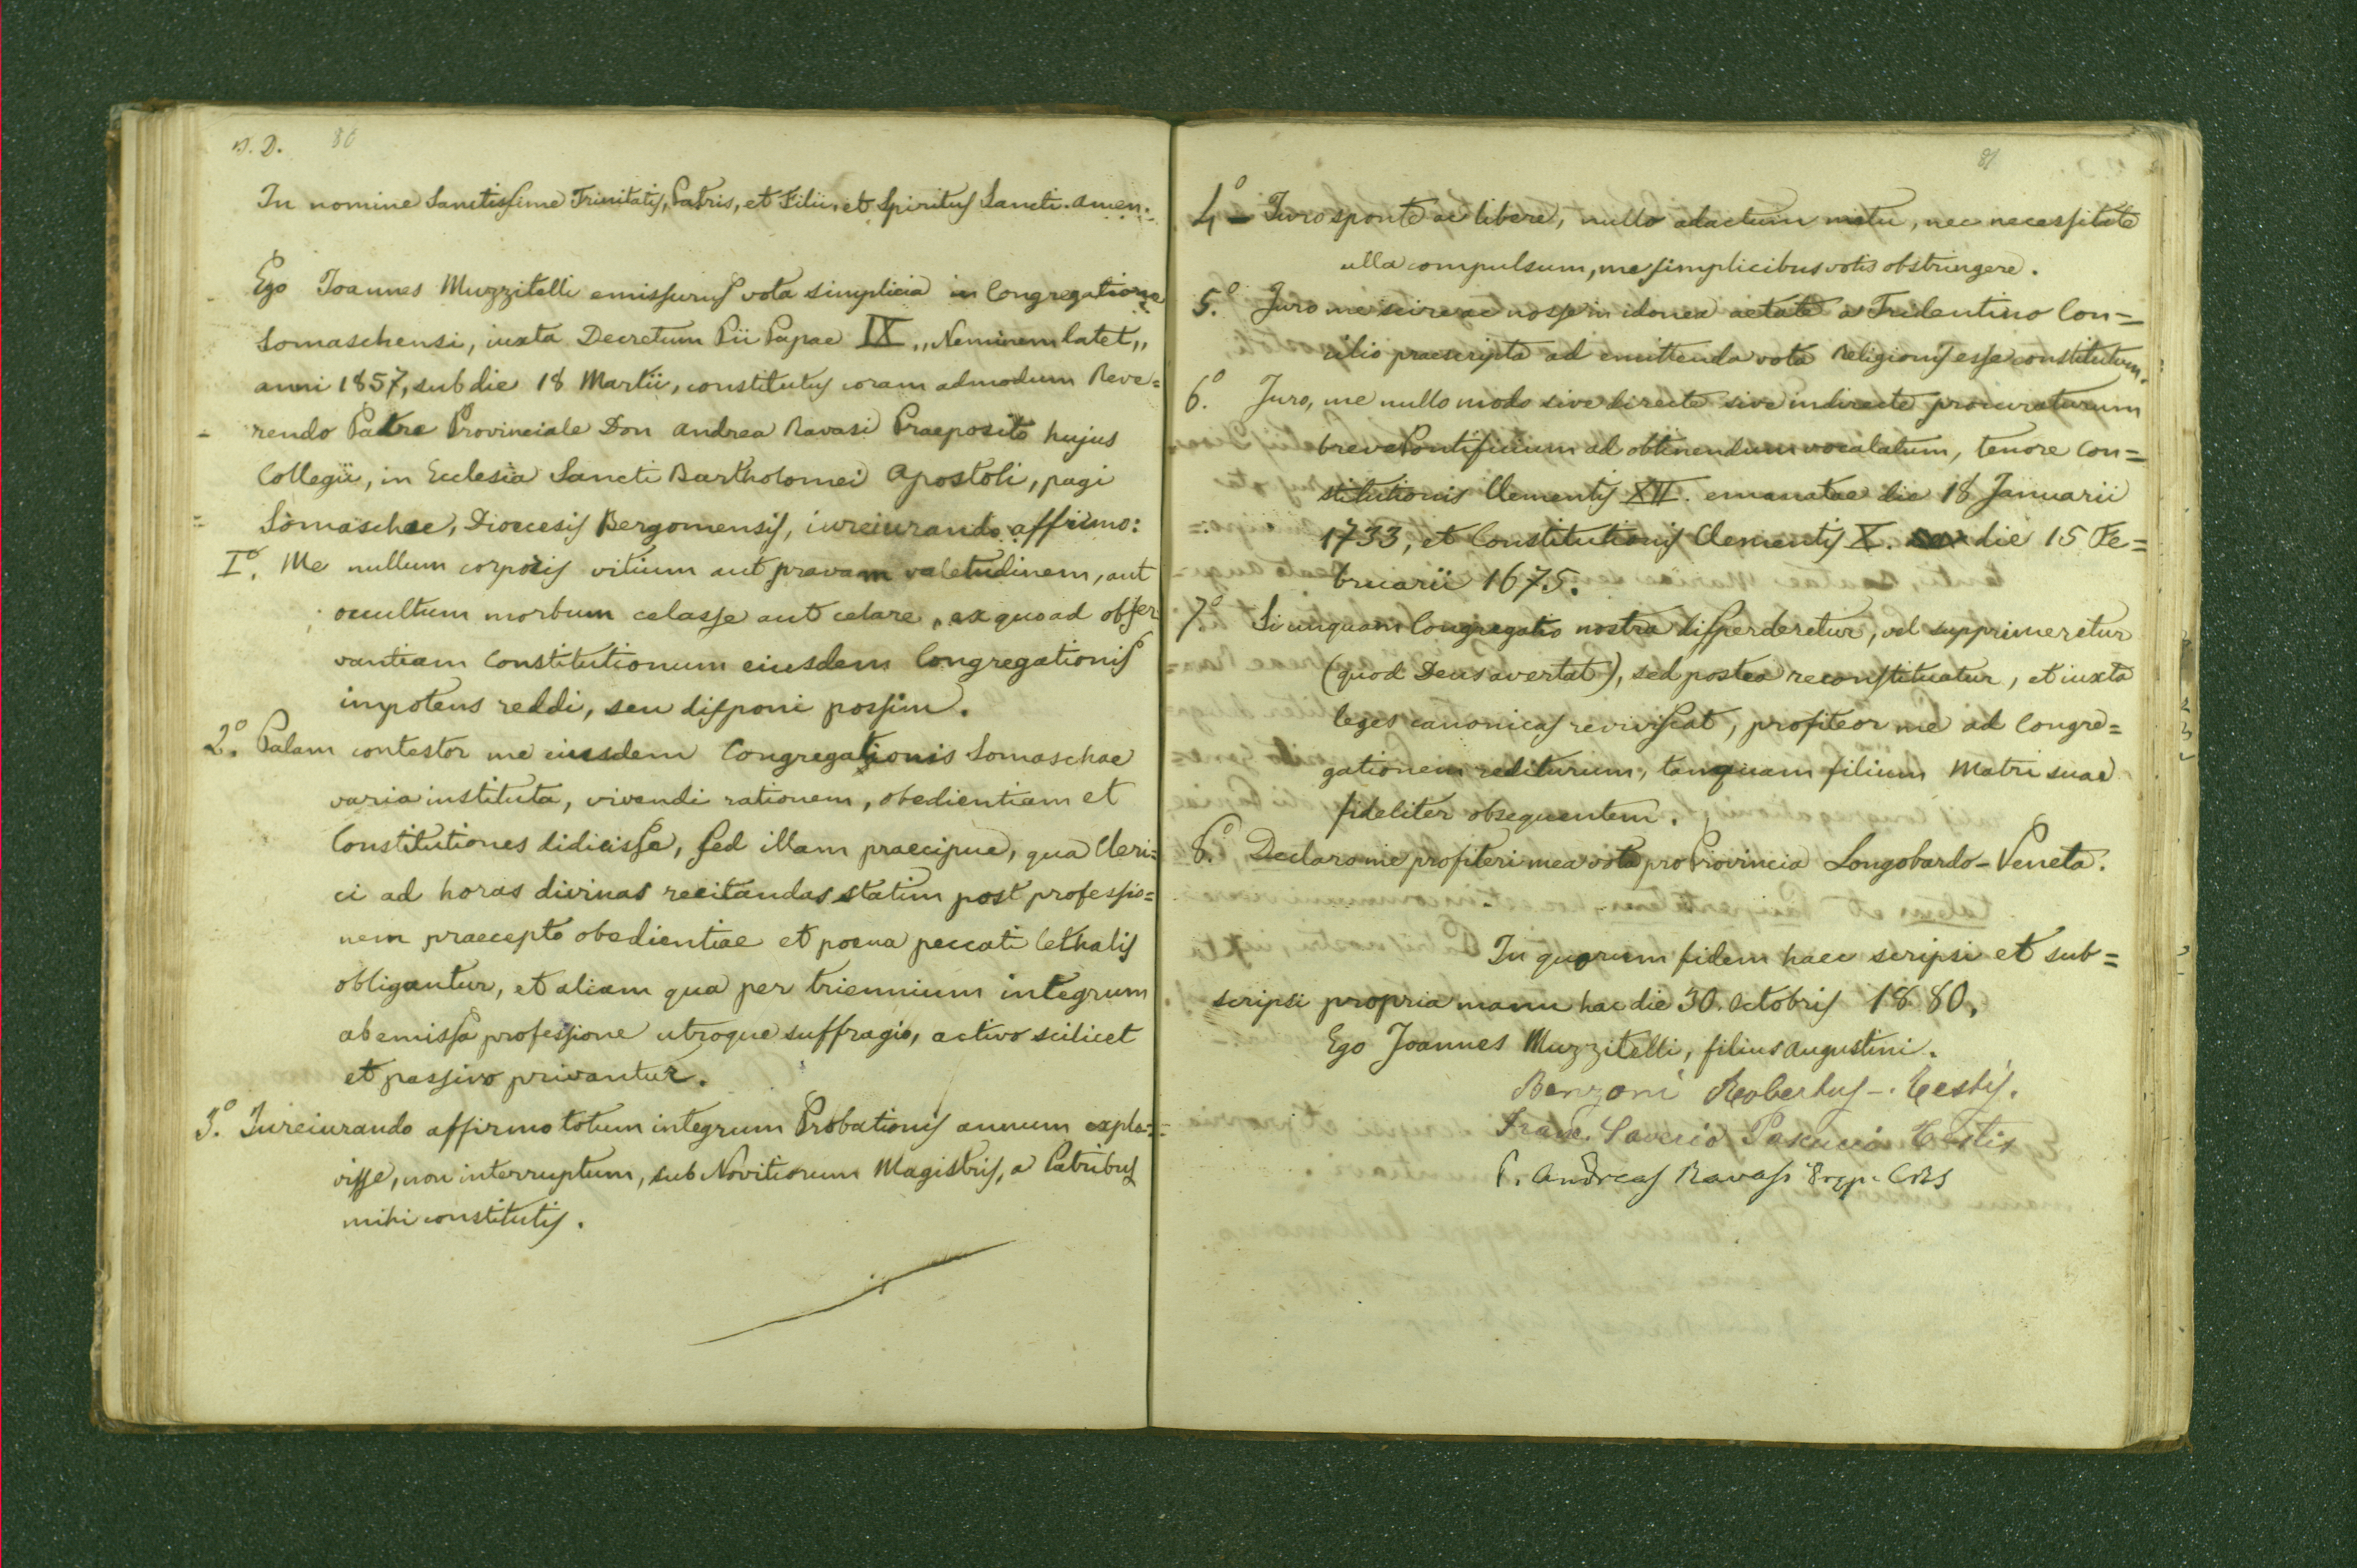 B. D. 80
In nomine Sanctissime Trinitatis, Patris, et Filii, et Spiritus Sancti. Amen.
Ego Joannes Muzzitelli emissurus vota simplicia in Congregatione
Somaschensi, iuxta Decretum Pii Papae IX „Neminem latet„
anni 1857, sub die 18 Martii, constitutus coram admodum Reve=
rendo Patre Provinciale Don Andrea Ravasi Praeposito hujus
Collegii, in Ecclesia Sancti Bartholomei Apostoli, pagi
Somaschae, Dioecesis Bergomensis, iureiurando affirmo:
I.o Me nullum corporis vitium aut pravam valetudinem, aut
occultum morbum celasse aut celare, ex quo ad obser
vantiam Constitutionum eiusdem Congregationis
impotens reddi, seu disponi possim.
2.o Palam contestor me eiusdem Congregationis Somaschae
varia instituta, vivendi rationem, obedientiam et
Constitutiones didicisse, sed illam praecipue, qua Cleri=
ci ad horas divinas recitandas statim post professio=
nem praecepto obedientiae et poena peccati lethalis
obligantur, et aliam qua per triennium integrum
ab emissa professione utroque suffragio, activo scilicet
et passivo privantur.
3.o Iureiurando affirmo totum integrum Probationis annum exple=
visse, non interruptum, sub Novitiorum Magistris, a Patribus
mihi constitutis.
81
4o – Juro sponte ac libere, nullo adactum metu, nec necessitate
ulla compulsum, me simplicibus votis obstringere.
5.o Juro me scire ac nosse in idonea aetate a Tridentino Con=
cilio praescripta ad emittenda vota Religionis esse constitutum.
6.o Juro, me nullo modo sive directe sive indirecte procuraturum
breve Pontificium ad obtinendum vocalatum, tenore Con=
stitutionis Clementis XII. emanatae die 18 Januarii
1733, et Constitutionis Clementis X. die 15 Fe=
bruarii 1675.
7.o Si unquam Congregatio nostra disperderetur, vel supprimeretur
(quod Deus avertat), sed postea reconstituatur, et iuxta
leges canonicas reviviscat, profiteor me ad Congre=
gationem rediturum, tanquam filium Matri suae
fideliter obsequentem.
8.o Declaro me profiteri mea vota pro Provincia Longobardo-Veneta.
In quorum fidem haec scripsi et sub=
scripsi propria manu hac die 30. Octobris 1880,
Ego Joannes Muzzitelli, filius Augustini.
Benzoni Robertus –. Testis.
Franc. Saverio Pascucci Testis
P. Andreas Ravasi Prep. CRS